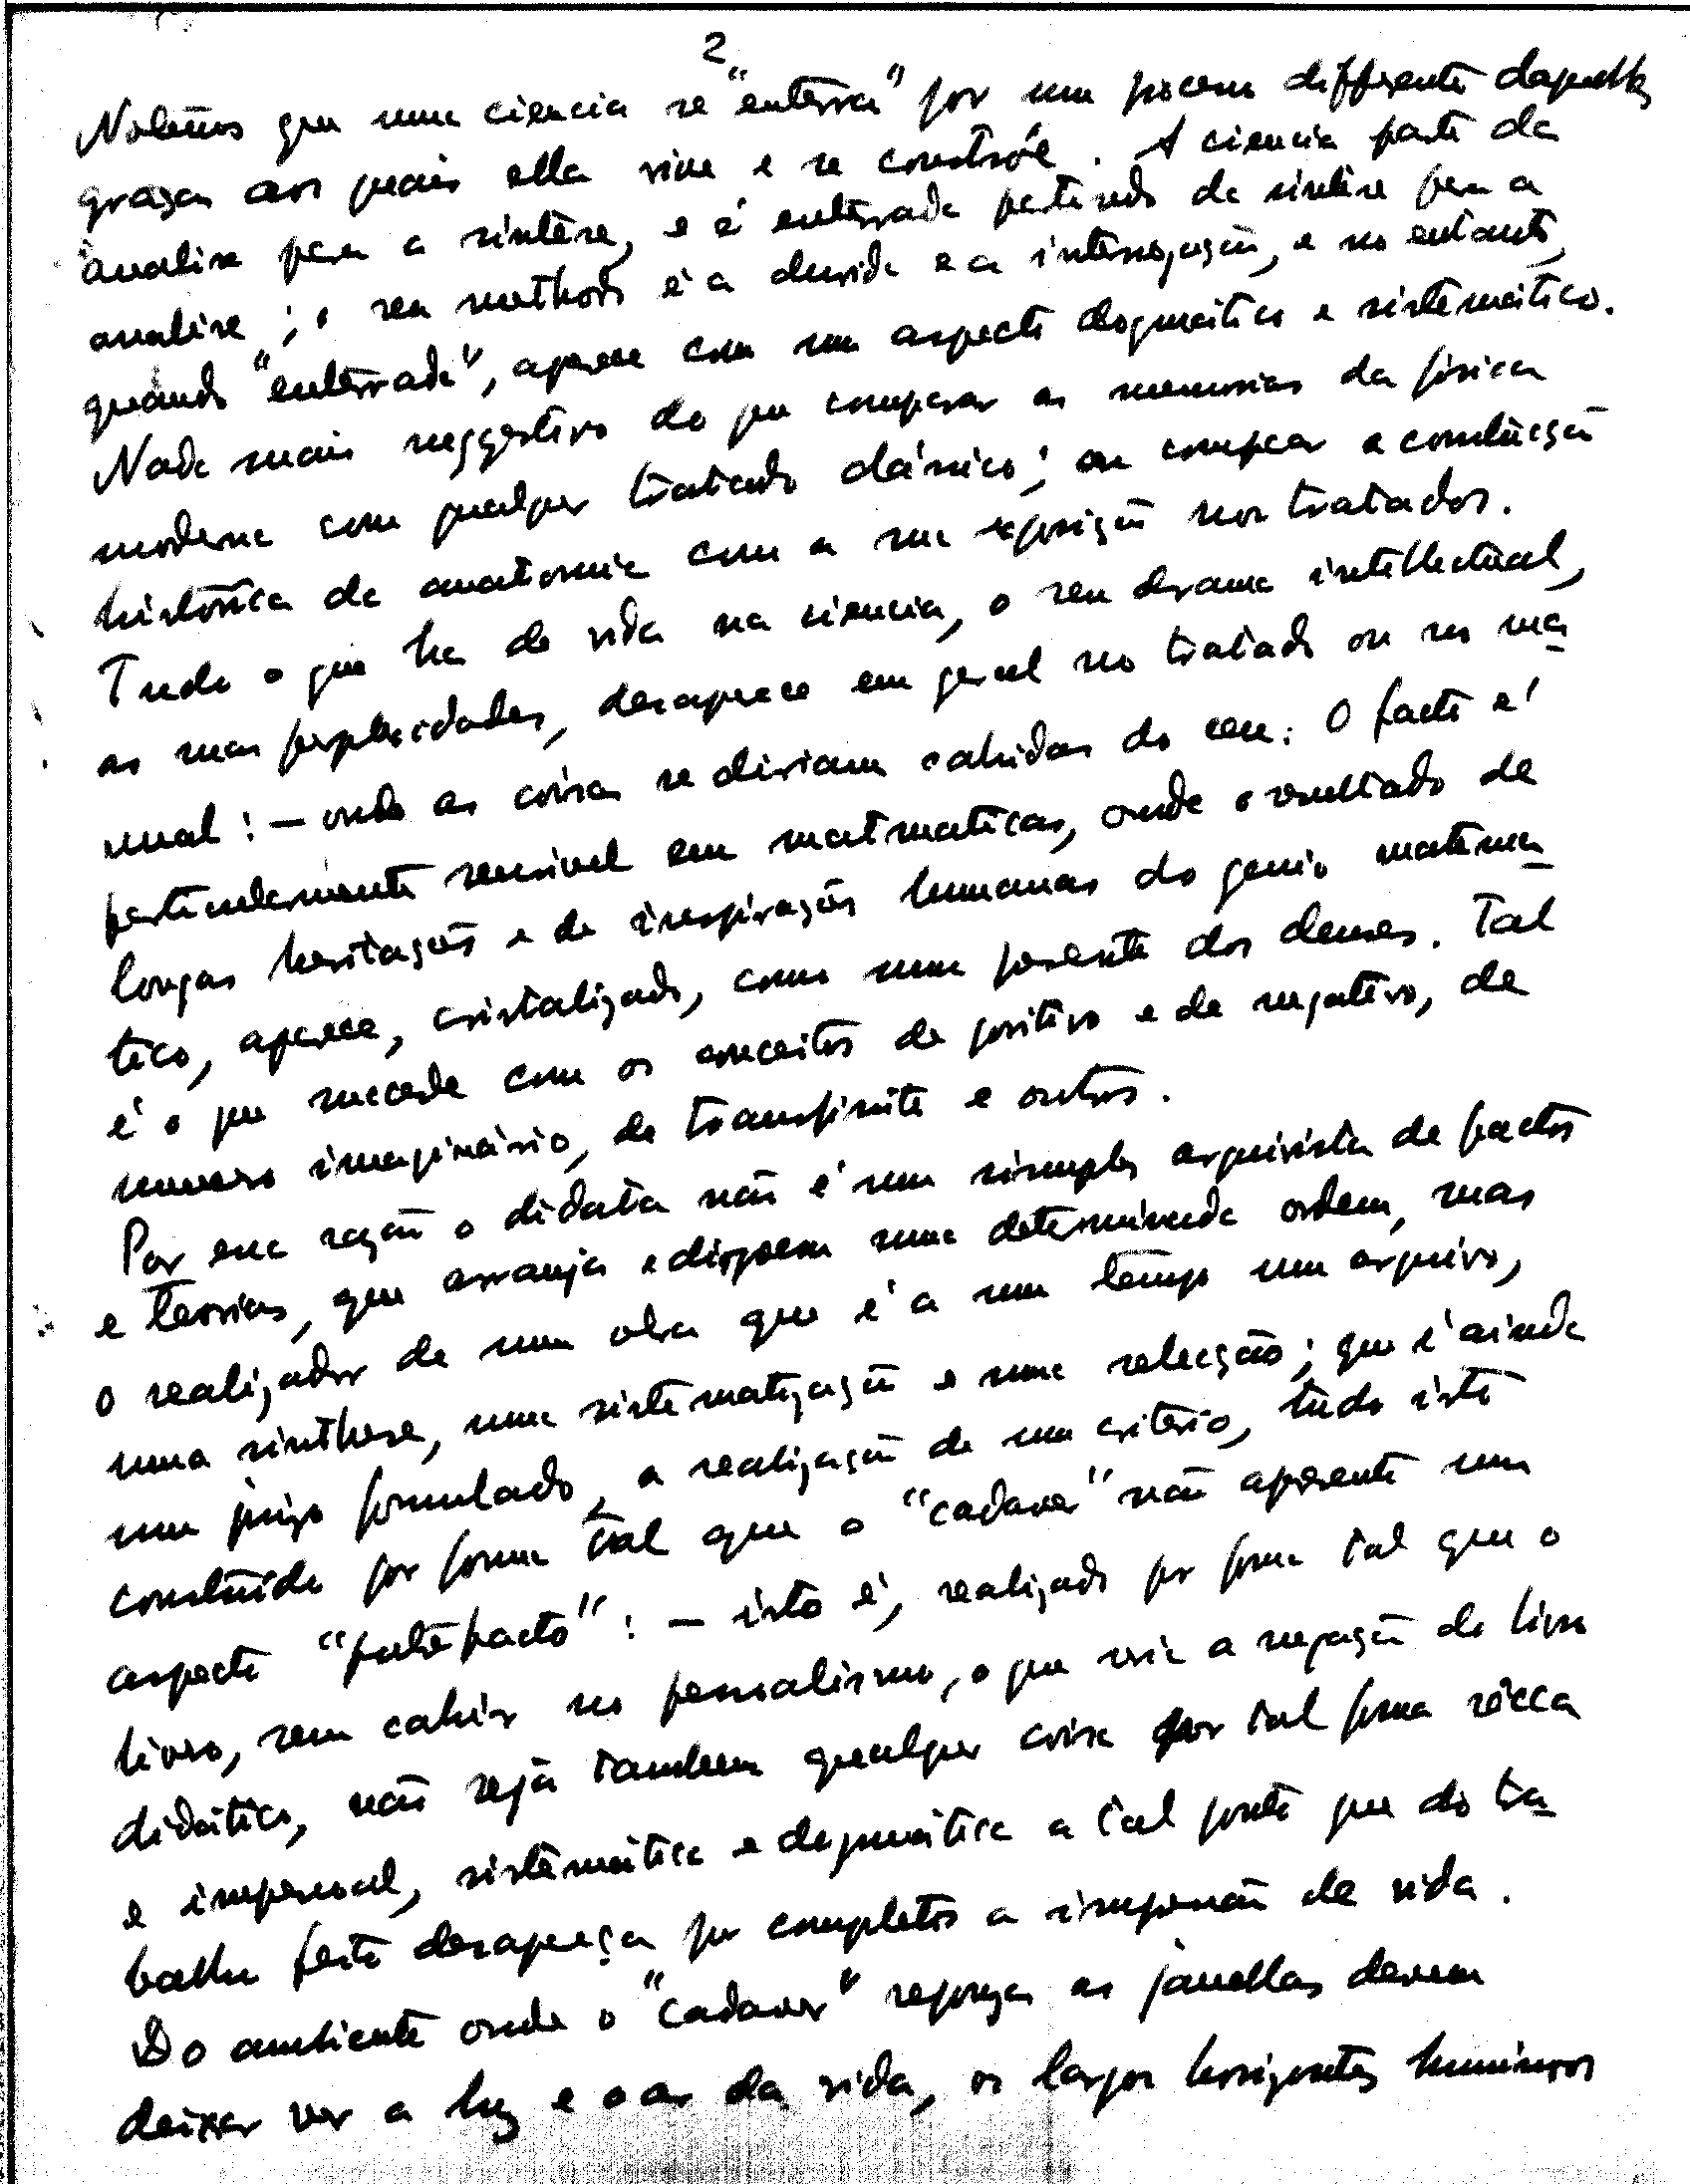 2
Notemos que uma ciencia se "enterra" por um processo differente daquelles
graças aos quaes ella vive e se constróe. A ciencia parte da
analise para a sintese, e é enterrada partindo da sintese para a
analise; o seu methodo é a duvida e a interrogação, e no entanto,
quando "enterrada", aparece com um aspecto dogmático e sistemático.
Nada mais suggestivo do que comparar as memorias da física
moderna com qualquer tratado clássico; ou comparar a constituição
histórica da anatomia com a sua exposição nos tratados.
Tudo o que ha de vida na ciencia, o seu drama intellectual,
as suas perplexidades, desaparece em geral no tratado ou no ma
nual: – onde as coisas se diriam cahidas do ceu. O facto é
particularmente sensivel em matematicas, onde o resultado de
longas hesitações e de inspirações humanas do genio matema
tico, aparece, cristalizado, como um presente dos deuses. Tal
é o que sucede com os conceitos de positivo e de negativo, de
numero imaginário, de transfinito e outros.
Por essa razão o didata não é um simples arquivista de factos
e teorias, que arranja e dispõe em uma determinada ordem, mas
o realizador de uma obra que é a um tempo um arquivo,
uma sinthese, uma sistematização e uma selecção; que é ainda
um juizo formulado, a realização de um critério, tudo isto
construido por forma tal que o "cadaver" não apresente um
aspecto "putrefacto": – isto é, realizado por forma tal que o
livro, sem cahir no personalismo, o que seria a negação do livro
didático, não seja tambem qualquer coisa por tal forma sêcca
e impessoal, sistemática e dogmática a tal ponto que do tra
balho feito desapareça por completo a impressão de vida.
Do ambiente onde o "cadaver" repousa as janellas devem
deixar ver a luz e o ar da vida, os largos horizontes luminosos